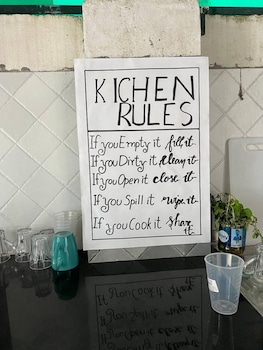 KICHEN
RULES
If you Empty it fill it
If you Dirty it clean it
If you Open it close it
If you Spill it wipe it
If you Cook it Share
it